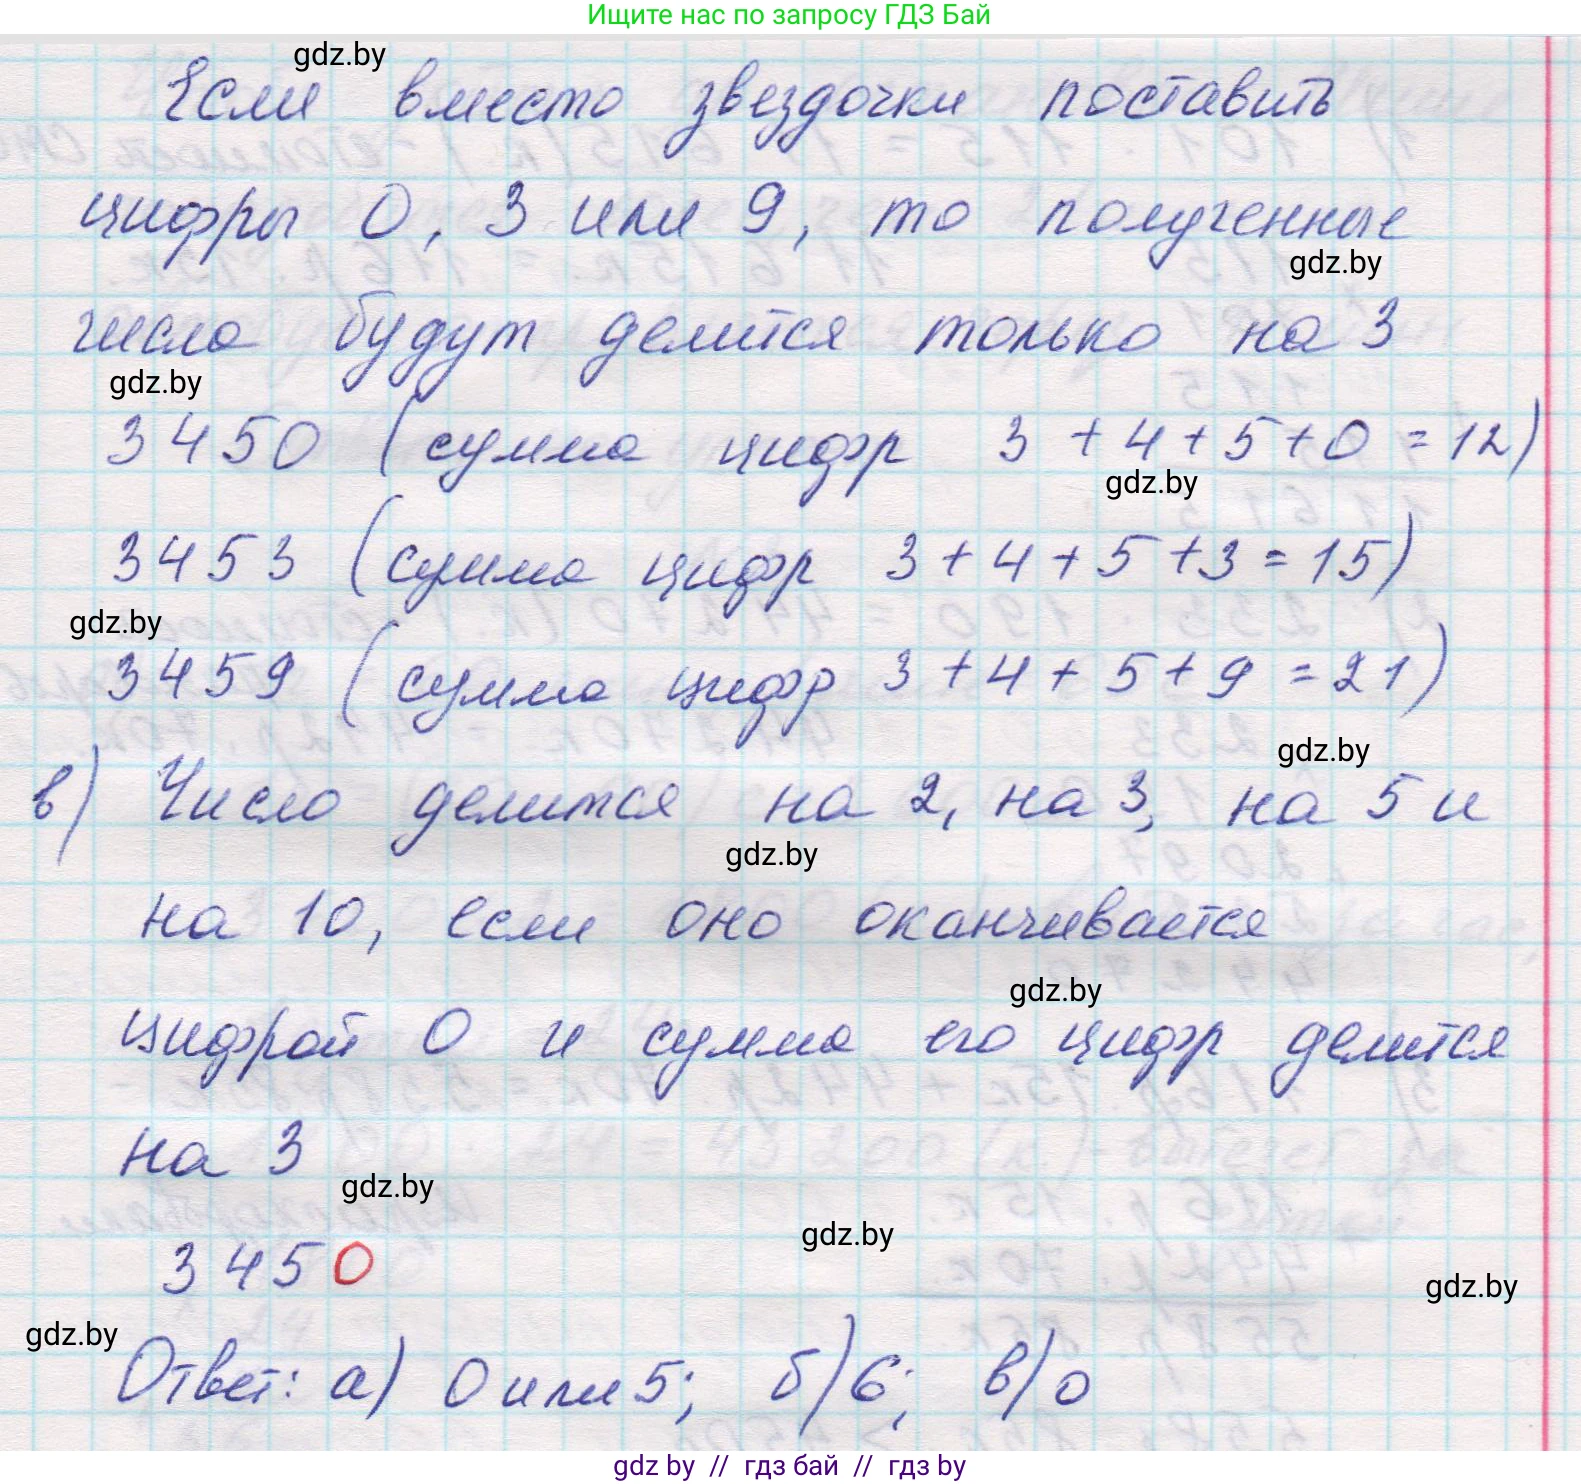 Ищите нас по запросу ГДЗ Бай
gdz.by
Если вместо звездочки поставить
цифры 0, 3 или 9, то полученные
gdz.by
числа будут делится только на 3
gdz.by
3450 (сумма цифр 3 + 4 + 5 + 0 = 12)
gdz.by
3453 (сумма цифр 3 + 4 + 5 + 3 = 15)
gdz.by
3459 (сумма цифр 3 + 4 + 5 + 9 = 21)
gdz.by
в) Число делится на 2, на 3, на 5 и
gdz.by
на 10, если оно оканчивается
gdz.by
цифрой 0 и сумма его цифр делится
на 3
gdz.by
gdz.by
3450
gdz.by
gdz.by
Ответ: а) 0 или 5; б) 6; в) 0
gdz by // гдз бай // гдз by